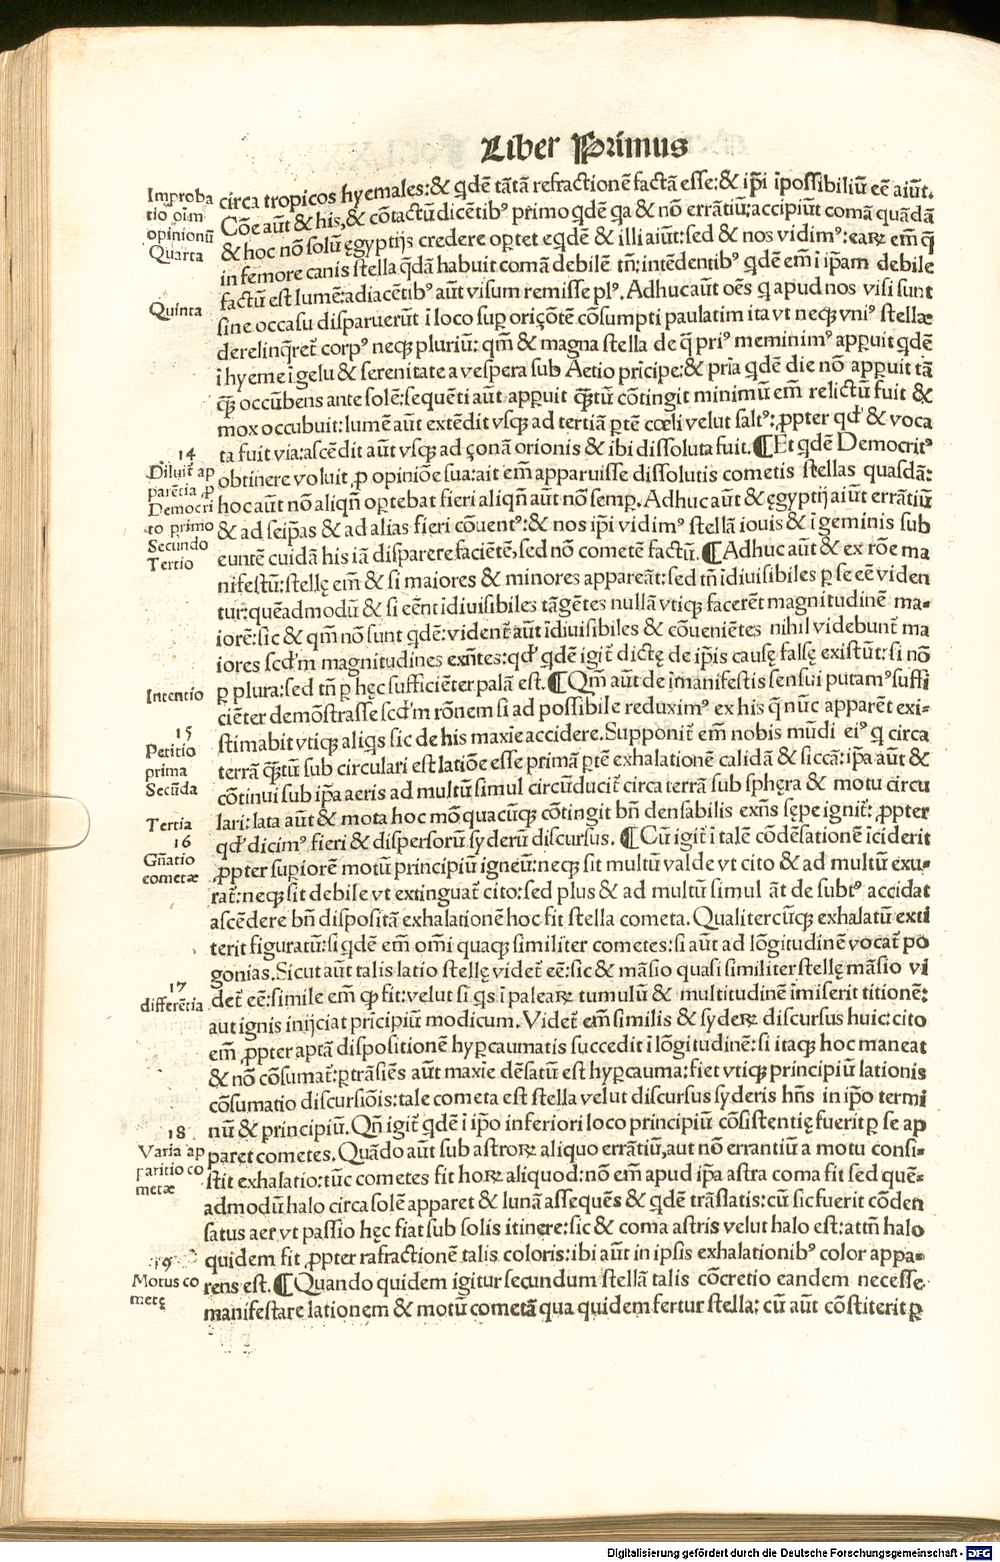 Liber Primus
Improba
tio oīm
opinionū
Quarta
Quinta
14
Diluit̃ ap
parētia ꝓ
Democri
to primo
Secundo
Tertio
Intentio
15
Petitio
prima
Secūda
Tertia
16
Gñatio
cometæ
17
differētia
18
Varia ap
paritio co
metæ
19
Motus co
metę
circa tropicos hyemales:& qdē tātā refractionē factā esse:& ip̄i īpossibiliū eē aiūt.
Cōe aūt & his,& cōtactū dicētibꝰ primo qdē qa & nō errātiū:accipiūt comā quādā
& hoc nō solū ęgyptijs credere oꝑtet eqdē & illi aiūt:sed & nos vidimꝰ:eaꝝ em̄ q̄
in femore canis stella q̄dā habuit comā debilē tñ:intēdentibꝰ qdē em̄ ī ip̄am debile
factū est lumē:adiacētibꝰ aūt visum remisse plꝰ. Adhuc aūt oēs q apud nos visi sunt
sine occasu disparuerūt ī loco suꝑ oriçōtē cōsumpti paulatim ita vt neqꝫ vniꝰ stellæ
derelinq̄ret̃ corpꝰ neqꝫ pluriū: qm̄ & magna stella de q̄ priꝰ meminimꝰ apꝑuit qdē
ī hyeme ī gelu & serenitate a vespera sub Aetio prīcipe:& pria qdē die nō apꝑuit tā
q̄ꝫ occūbens ante solē:sequēti aūt apꝑuit q̄ꝫtū cōtingit minimū em̄ relictū fuit &
mox occubuit:lumē aūt extēdit vsqꝫ ad tertiā ꝑtē cœli velut saltꝰ: ꝓpter qđ & voca
ta fuit via:ascēdit aūt vsqꝫ ad çonā orionis & ibi dissoluta fuit.¶Et qdē Democritꝰ
obtinere voluit ꝓ opiniōe sua:ait em̄ apparuisse dissolutis cometis stellas quasdā:
hoc aūt nō aliqñ oꝑtebat fieri aliqñ aūt nō semꝑ. Adhuc aūt & ęgyptij aiūt errātiū
& ad seip̄as & ad alias fieri cōuentꝰ:& nos ip̄i vidimꝰ stellā iouis & ī geminis sub
euntē cuidā his iā disparere faciētē, sed nō cometē factū.¶Adhuc aūt & ex rōe ma
nifestū:stellę em̄ & si maiores & minores appareāt: sed tñ īdiuisibiles ꝑ se eē viden
tur:quēadmodū & si eēnt īdiuisibiles tāgētes nullā vtiqꝫ facerēt magnitudinē ma-
iorē:sic & qm̄ nō sunt qdē: vident̃ aūt īdiuisibiles & cōueniētes nihil videbunt̃ ma
iores scđ'm magnitudines exñtes:qđ qdē igit̃ dictę de ip̄is causę falsę existūt: si nō
ꝑ plura:sed tñ ꝑ hęc sufficiēter palā est.¶Qm̄ aūt de īmanifestis sensui putamꝰ suffi
ciēter demōstrasse scđ'm rōnem si ad possibile reduximꝰ ex his q̄ nūc apparēt exi-
stimabit vtiqꝫ aliqs sic de his maxie accidere. Supponit̃ em̄ nobis mūdi eiꝰ q circa
terrā q̄ꝫtū sub circulari est latiōe esse primā ꝑtē exhalationē calidā & siccā: ip̄a aūt &
cōtinui sub ip̄a aeris ad multū simul circūducit̃ circa terrā sub sphęra & motu circu
lari:lata aūt & mota hoc mō quacūqꝫ cōtingit bñ densabilis exñs sępe ignit̃: ꝓpter
qđ dicimꝰ fieri & dispersorū syderū discursus. ¶Cū igit̃ ī talē cōdēsationē īciderit
ꝓpter suꝑiorē motū principiū igneū:neqꝫ sit multū valde vt cito & ad multū exu-
rat̃:neqꝫ sit debile vt extinguat̃ cito:sed plus & ad multū simul āt de subtꝰ accidat
ascēdere bñ dispositā exhalationē hoc fit stella cometa. Qualitercūqꝫ exhalatū exti
terit figuratū:si qdē em̄ om̄i quaqꝫ similiter cometes:si aūt ad lōgitudinē vocat̃ po
gonias. Sicut aūt talis latio stellę videt̃ eē: sic & māsio quasi similiter stellę māsio vi
det̃ eē:simile em̄ qꝫ fit: velut si qs ī paleaꝝ tumulū & multitudinē īmiserit titionē:
aut ignis inijciat prīcipiū modicum. Videt̃ em̄ similis & sydeꝝ discursus huic:cito
em̄ ꝓpter aptā dispositionē hyꝑcaumatis succedit ī lōgitudinē:si itaqꝫ hoc maneat
& nō cōsumat̃:ꝑtrāsiēs aūt maxie dēsatū est hyꝑcauma:fiet vtiqꝫ principiū lationis
cōsumatio discursiōis:tale cometa est stella velut discursus syderis hñs in ip̄o termi
nū & principiū. Qñ igit̃ qdē ī ip̄o inferiori loco principiū cōsistentię fuerit ꝑ se ap
paret cometes. Quādo aūt sub astroꝝ aliquo errātiū, aut nō errantiū a motu consi-
stit exhalatio:tūc cometes fit hoꝝ aliquod:nō em̄ apud ip̄a astra coma fit sed quē-
admodū halo circa solē apparet & lunā assequēs & qdē trāslatis:cū sic fuerit cōden
satus aer vt passio hęc fiat sub solis itinere:sic & coma astris velut halo est:attñ halo
quidem fit ꝓpter rafractionē talis coloris:ibi aūt in ipsis exhalationibꝰ color appa-
rens est.¶Quando quidem igitur secundum stellā talis cōcretio eandem necesse
manifestare lationem & motū cometā qua quidem fertur stella: cū aūt cōstiterit ꝑ
Digitalisierung gefördert durch die Deutsche Forschungsgemeinschaft - DFG